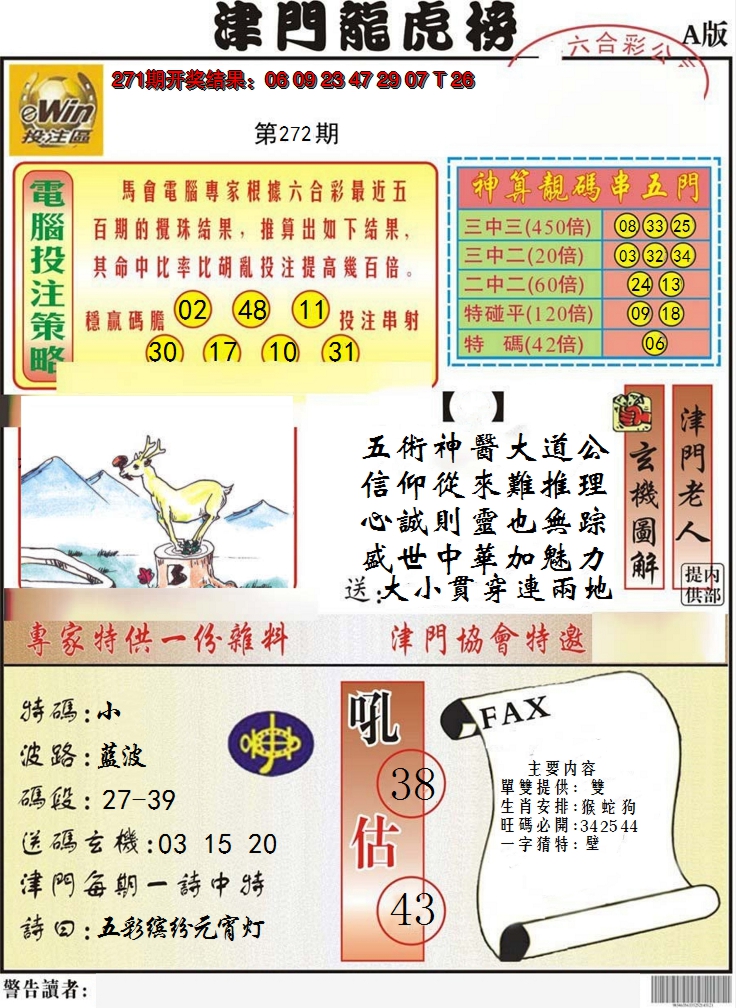 津門龍虎榜
A版
六合彩公司
271期开奖结果：06 09 23 47 29 07 T 26
eWin
投注區
第272期
電腦投注策略
馬會電腦專家根據六合彩最近五
百期的攪珠结果，推算出如下结果，
其命中比率比胡亂投注提高幾百倍。
穩赢碼膽 02 48 11 投注串射
30 17 10 31
神算靚碼串五門
三中三(450倍) 08 33 25
三中二(20倍) 03 32 34
二中二(60倍) 24 13
特碰平(120倍) 09 18
特 碼(42倍) 06
【 】
五術神醫大道公
信仰從來難推理
心誠則靈也無踪
盛世中華加魅力
送:大小貫穿連兩地
玄機圖解
津門老人
内部提供
專家特供一份雜料
津門協會特邀
特碼:小
波路:藍波
碼段:27-39
送碼玄機:03 15 20
津門每期一詩中特
詩曰:五彩缤纷元宵灯
吼
38
估
43
FAX
主要内容
單雙提供：雙
生肖安排:猴蛇狗
旺碼必開:342544
一字猜特：壁
警告讀者: